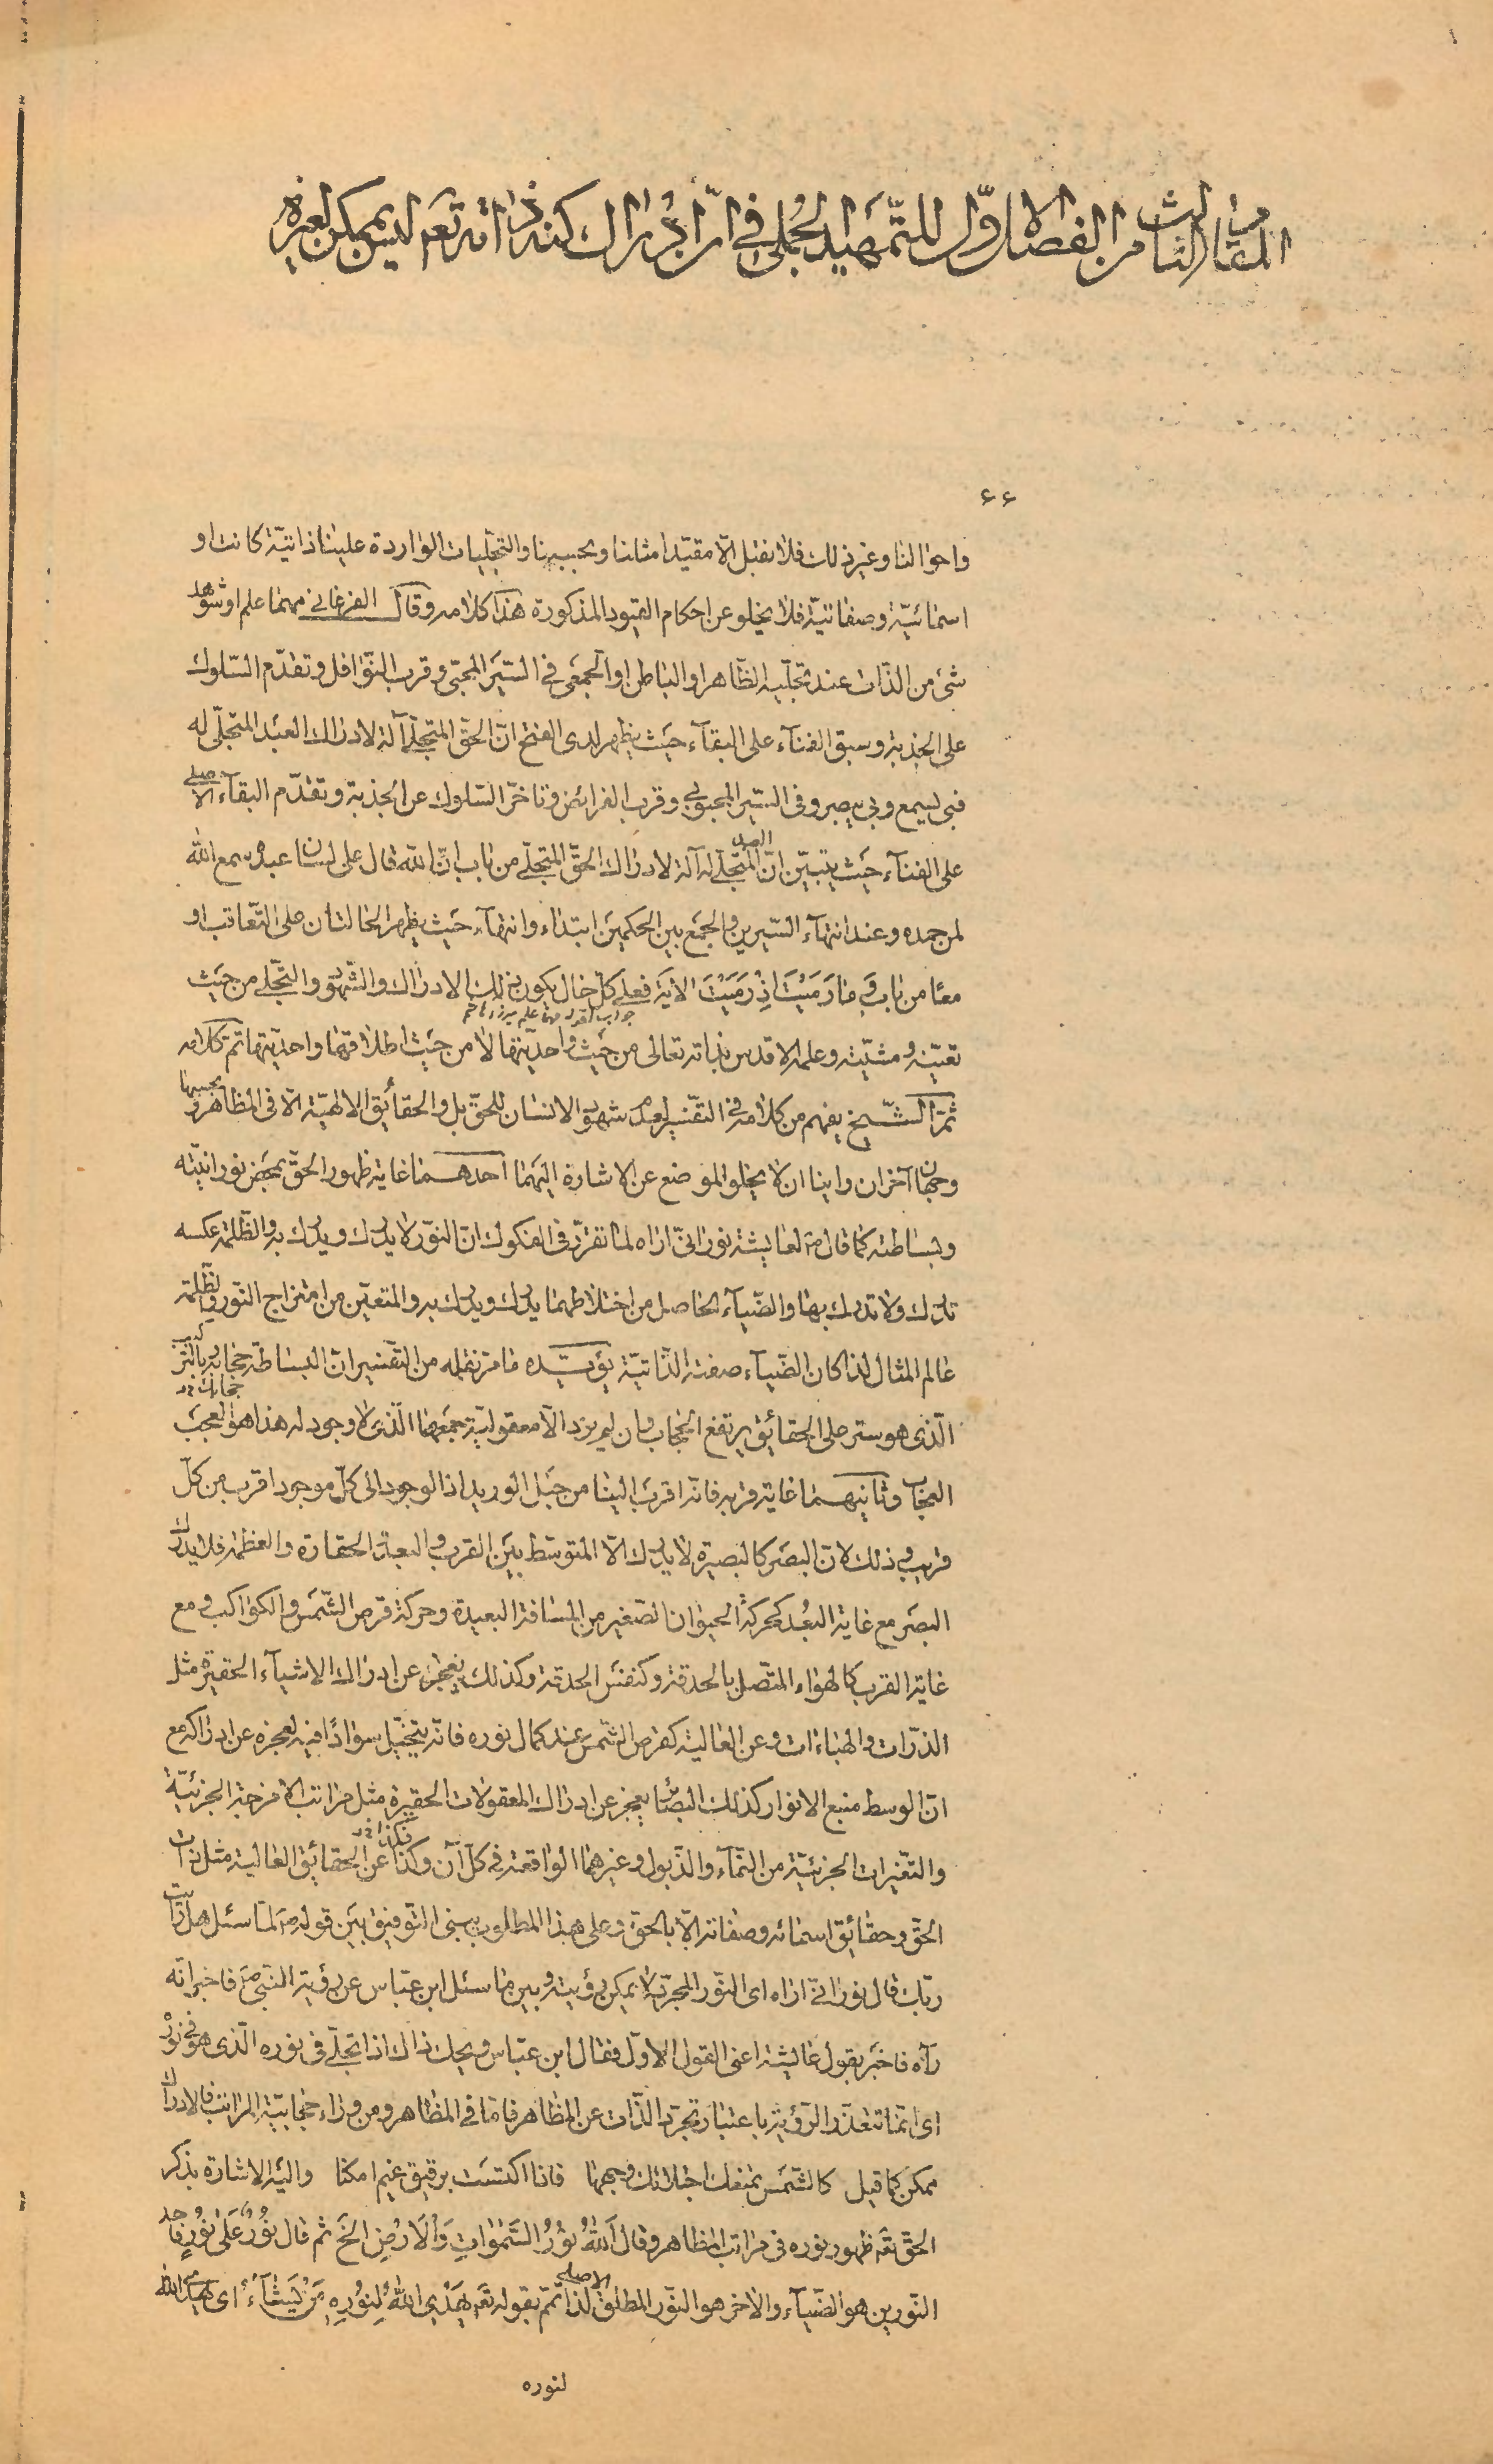 المقام الثالث من الفصل الاوّل للتّمهيد الجُملى فى انّ ادراك كنه ذاته تعَ ليس يمكن لغيره
۶۶
واحوالنا وغير ذلك فلا نقبل الّا مقيّدا مثلنا وبحسبنا والتجلّيات الواردة علينا ذاتيّة كانت او
اسمائيّة وصفاتيّة فلا يخلو عن احكام القيود المذكورة هذا كلامه وقال الفرغانى مهما علم او شوهد
شئ من الذّات عند تجلّيه الظّاهر او الباطن او الجمعى فى السّير المحبّى وقرب النّوافل وتقدّم السّلوك
على الجذبة وسبق الفنآء على البقآء حيث يظهر لدى الفتح انّ الحقّ المتجلّى آلة لادراك العبد المتجلّى له
فبى يسمع وبى يبصر وفى السّير المحبوبى وقرب الفرائض وتاخّر السّلوك عن الجذبة وتقدّم البقآء الاصلى
على الفنآء حيث يتبيّن انّ المتجلّى له آلة لادراك الحقّ المتجلّى من باب انّ الله قال على لسان عبده سمع الله
لمن حمده وعند انتهآء السّيرين والجمع بين الحكمين ابتداء وانتهآء حيث يظهر الحالتان على التّعاقب او
معًا من باب وَما رَمَيْتَ اِذْ رَمَيْتَ الاية فعلى كلّ حال يكون ذلك الادراك والشّهود والتّجلّى من حيث
تعيّنه ومشيّته وعلمه الاقدس بذاته تعالى من حيث واحديّتها لا من حيث اطلاقها واحديّتها تمّ كلامه
ثمّ الشّيخ يفهم من كلامه فى التّفسير لعدم شهود الانسان للحقّ بل والحقائق الالهيّة الّا فى المظاهر وبحسبها
وجهان آخران راينا ان لا يخلو الموضع عن الاشارة اليهما احدهما غاية ظهور الحقّ بمحض نورانيّته
وبساطته كما قال ص لعايشة نور انّى اراه لما تقرّر فى الفكوك انّ النّور لا يدرك ويدرك به والظّلمة عكسه
تدرك ولا تدرك بها والضّيآء الحاصل من اختلاطهما يدرك ويدرك به والمتعيّن من امتزاج النّور والظّلمة
عالم المثال لذا كان الضّيآء صفته الذّاتيّة يؤيّده ما مرّ نقله من التّفسير انّ البساطة حجاب وبالتركيب
الّذى هو ستر على الحقائق يرتفع الحجاب وان لم يزد الّا معقوليّة جمعها الّذى لا وجود له هذا هو العجب
العجاب وثانيهما غاية قربه فانّه اقرب الينا من حبل الوريد اذ الوجود الى كلّ موجود اقرب من كلّ
قريب وذلك لانّ البصر كالبصيرة لا يدرك الّا المتوسّط بين القرب والبعد والحقارة والعظمة فلا يدرك
البصر مع غاية البُعد كحركة الحيوان الصّغير من المسافة البعيدة وحركة قرص الشّمس والكواكب ومع
غاية القرب كالهواء المتّصل بالحدقة وكنفس الحدقة وكذلك يعجز عن ادراك الاشيآء الحقيرة مثل
الذرّات والهباءات وعن العالية كقرص الشّمس عند كمال نوره فانّه يتخيّل سوادًا فيه لعجزه عن ادراكه مع
انّ الوسط منبع الانوار كذلك البصائر يعجز عن ادراك المعقولات الحقيرة مثل مراتب الامزجة الجزئيّة
والتّغيّرات الجزئيّة من النّمآء والذّبول وغيرهما الواقعة فى كلّ آن وكذا عن الحقائق العالية مثل ذات
الحقّ وحقائق اسمائه وصفاته الّا بالحقّ وعلى هذا المطلوب يبنى التّوفيق بين قوله ص لمّا سئل هل رايت
ربّك قال نور انّى اراه اى النّور المجرّد لا يمكن رؤيته وبين ما سئل ابن عبّاس عن رؤية النّبى ص فاخبر انّه
رآه فاخبر بقول عايشة اعنى القول الاوّل فقال ابن عبّاس ويحك ذاك اذا تجلّى فى نوره الّذى هو نوره
اى انّما تتعذّر الرّؤية باعتبار تجرّد الذّات عن المظاهر فامّا فى المظاهر ومن وراء حجابيّة المراتب فالادراك
ممكن كما قيل كالشّمس تمنعك اجتلائك وجهها فاذا اكتست برقيق غيم امكنا واليه الاشارة بذكر
الحقّ تعَ ظهور نوره فى مراتب المظاهر وقال اَللّٰهُ نُورُ السَّمٰوٰاتِ وَالْاَرْضِ الخ ثم قال نُورٌ عَلىٰ نُورٍ فاحد
النّورين هو الضّيآء والاخر هو النّور المطلق الاصلى لذا تمّم بقوله تعَ يَهْدِى اللّٰهُ لِنُورِهِ مَنْ يَشٰآءُ اى يهدى الله
لنوره